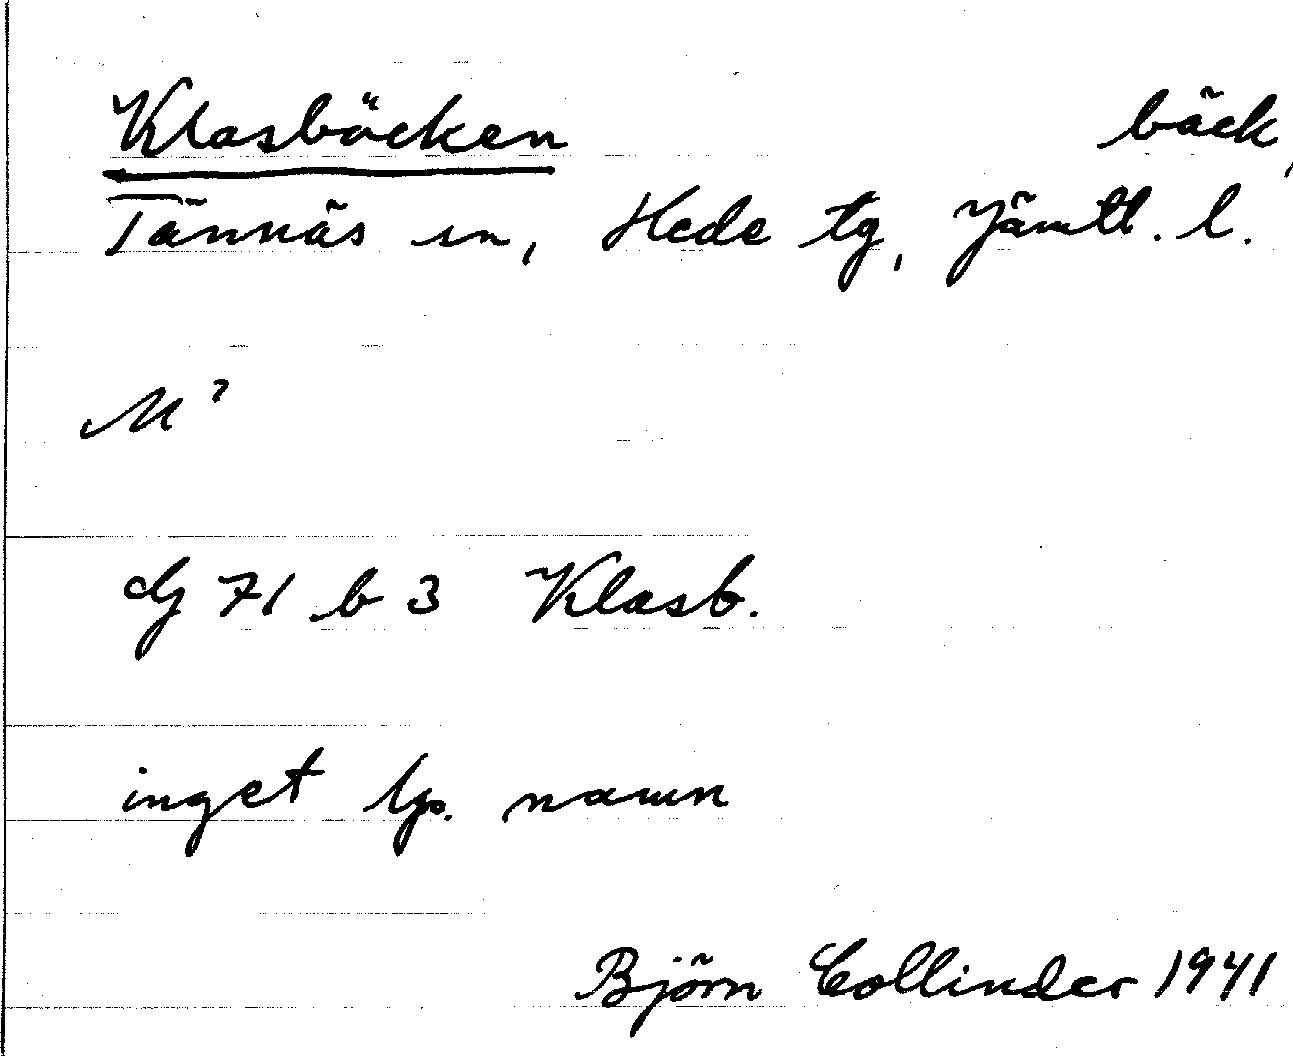 Klasbäcken bäck,
Tännäs sn, Hede tg, Jämtl. l.
M?
dJ 71 b 3 Klasb.
inget lp. namn
Björn Collinder 1941